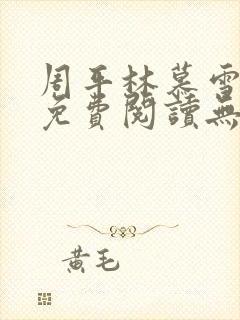 周平林慕雪
免費閱讀無
黃毛